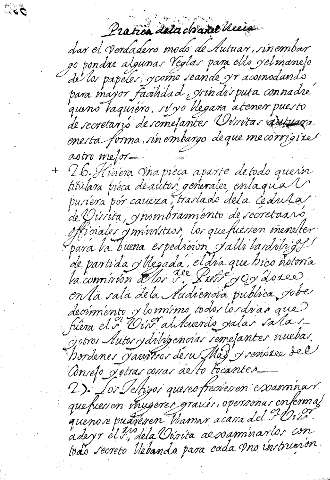 Pratica de la chancilleria
dar el verdadero modo de Autuar, sin embar
go pondre algunas Reglas para ello, y el manejo
de los papeles, y como se ande yr acomodando
para mayor facilidad, y sin disputa con nadie
que no la quiero, si yo llegara a tener puesto
de secretario de semejantes Visitas
en esta forma, sin embargo de que me corrigiera
a otro mejor
+ 26. Hiciera Una pieça aparte de todo que in
titulara pieça de autos generales en la qual
pusiera por caveza, traslado de la Cedula
de Visita, y nombramiento de secretario,
officiales y ministros, los que fuesen menester
para la buena espedicion, y alli
de partida y llegada, el dia que hiço notoria
la comission a los sres Presidte y Oydores
en la sala de la Audiencia publica, y obe
decimiento, y lo mismo todos los dias que
fuera el sr Visor al Acuerdo, y a las salas
y otros Autos y diligencias semejantes nuebas
hordenes y autos de su Magd y señores de el
Consejo y otras cosas de esto tocantes
27. Los testigos que se ofreciesen examinar
que fuesen mugeres graves, o personas enfermas
que no se pudiesen llamar a casa del sr Visor
a de yr el sr de la Visita a examinarlos con
todo secreto llebando para cada uno instruzion.